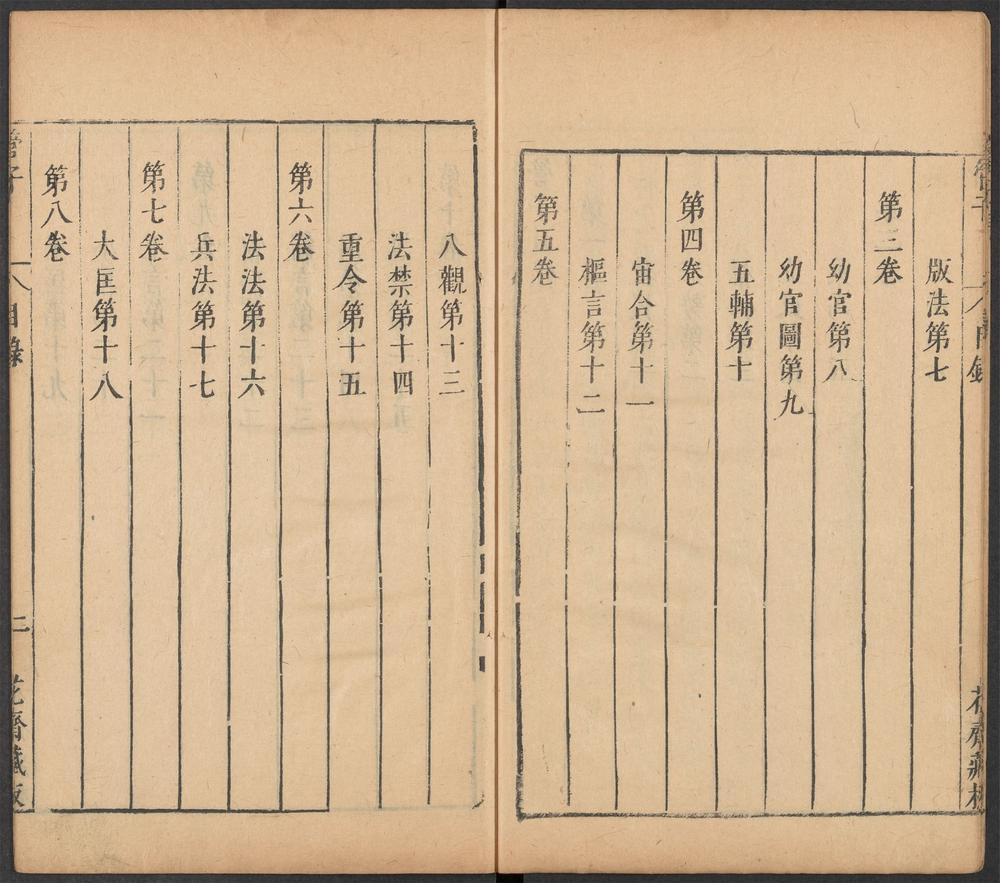 管子
目錄
花齋藏板
版法第七
第三卷
幼官第八
幼官圖第九
五輔第十
第四卷
宙合第十一
樞言第十二
第五卷
八觀第十三
法禁第十四
重令第十五
第六卷
法法第十六
兵法第十七
第七卷
大匡第十八
第八卷
管子
目錄
二
花齋藏板